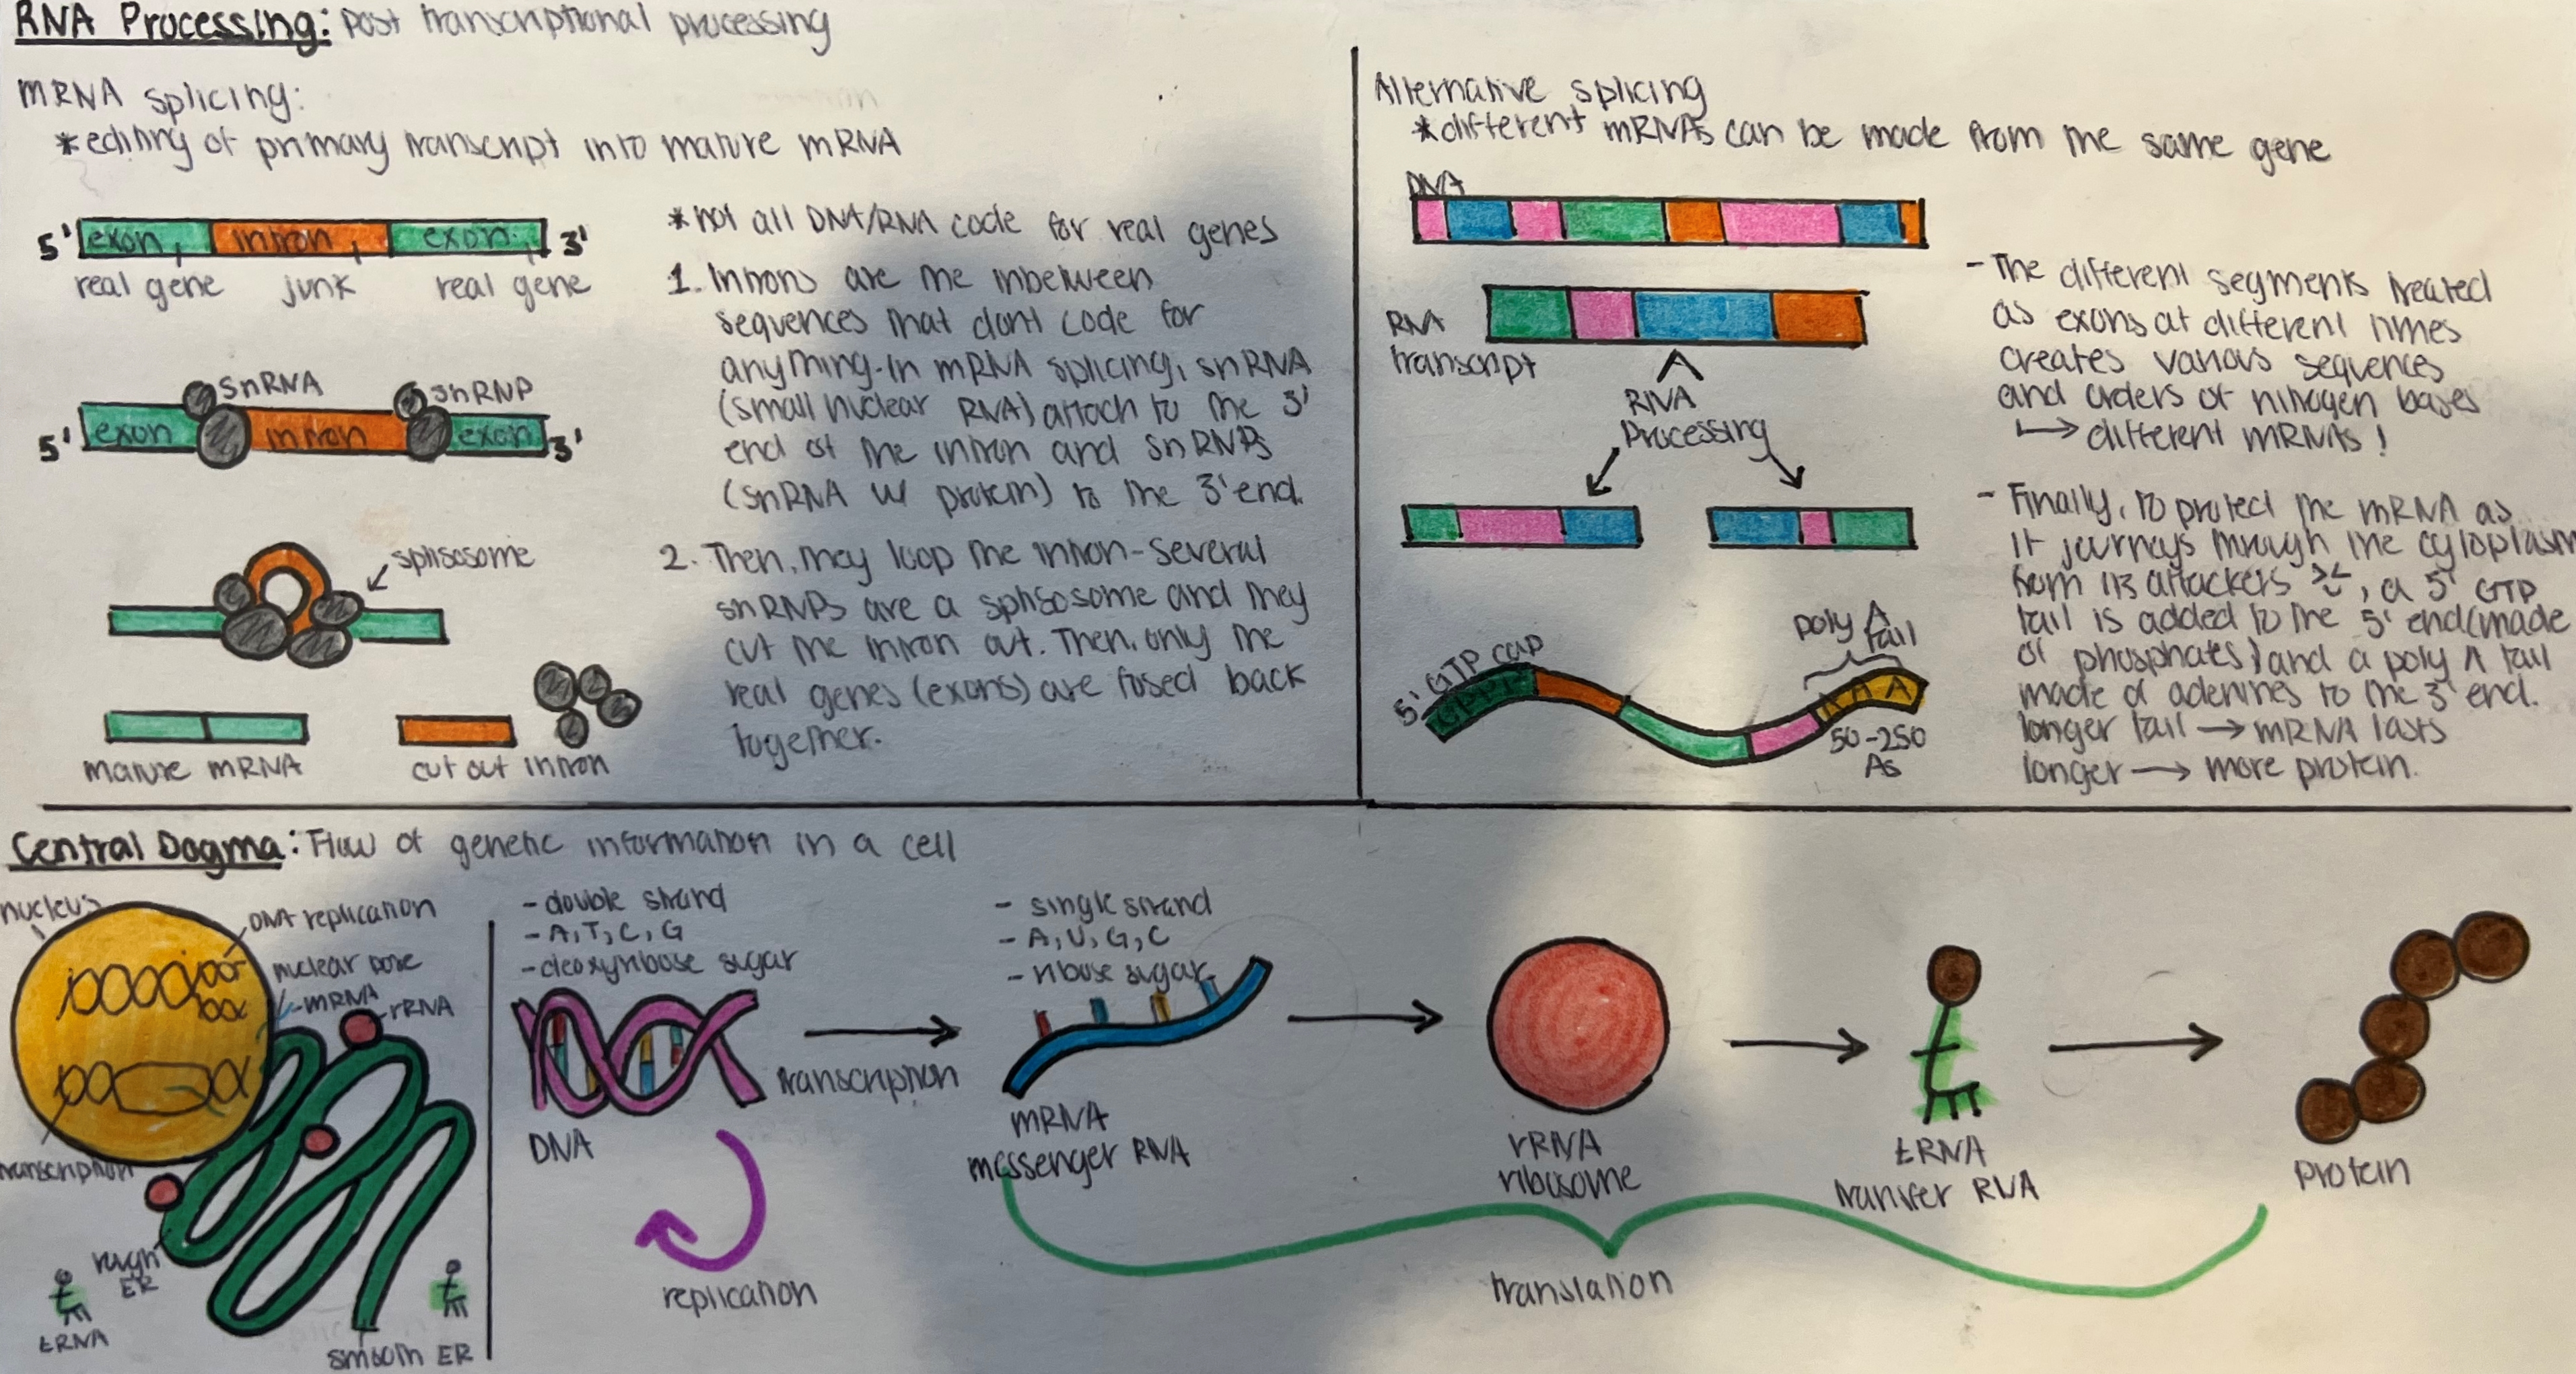 RNA Processing: post transcriptional processing
mRNA splicing:
*editing of primary transcript into mature mRNA
5' exon intron exon 3'
real gene junk real gene
snRNA snRNP
5' exon intron exon 3'
splisosome
mature mRNA cut out intron
*not all DNA/RNA code for real genes
1. Introns are the inbetween
sequences that dont code for
anything. in mRNA splicing, snRNA
(small nuclear RNA) attach to the 3'
end of the intron and snRNPs
(snRNA w/ protein) to the 3' end.
2. Then, they loop the intron-several
snRNPs are a splisosome and they
cut the intron out. Then, only the
real genes (exons) are fused back
together.
Alternative splicing
*different mRNAs can be made from the same gene
DNA
RNA
transcript
RNA
Processing
5' GTP cap
poly A tail
A A A
50-250
As
- The different segments treated
as exons at different times
creates various sequences
and orders of nitrogen bases
→ different mRNAs!
- Finally, to protect the mRNA as
it journeys through the cytoplasm
from its attackers, a 5' GTP
tail is added to the 5' end (made
of phosphates) and a poly A tail
made of adenines to the 3' end.
longer tail → mRNA lasts
longer → more protein.
Central Dogma: Flow of genetic information in a cell
nucleus
DNA replication
nuclear pore
mRNA
rRNA
transcription
rough
ER
tRNA
smooth ER
- double strand
- A, T, C, G
- deoxyribose sugar
DNA
replication
transcription
- single strand
- A, U, G, C
- ribose sugar
mRNA
messenger RNA
rRNA
ribosome
tRNA
transfer RNA
protein
translation